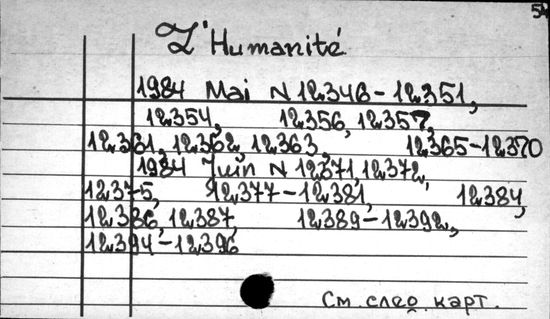 L'Humanité
1984 Mai N 12346-12351,
12354, 12356, 12357,
12361, 12362, 12363, 12365-12370
1984 Juin N 12371, 12372,
12375, 12377-12381, 12384,
12386, 12387, 12389-12392,
12394-12396
См. след. карт.